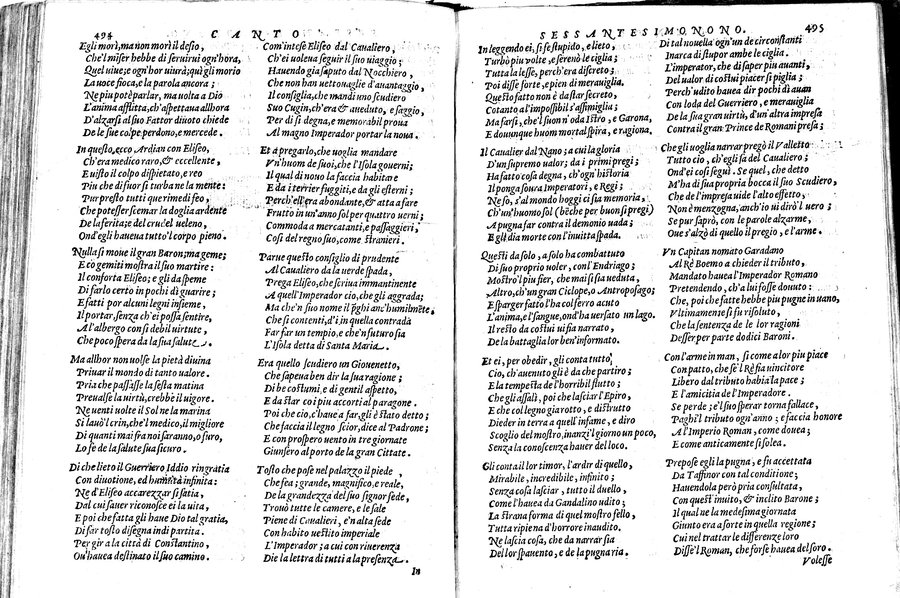 494 CANTO
Egli morì, ma non morì il desio,
Che'l miser hebbe di seruirui ogn'hora,
Quel uiue; e ogn'hor uiurà; qu'egli morio
La uoce fioca, e la parola ancora;
Ne piu potè parlar, ma uolta a Dio
L'anima afflitta, ch'aspettaua allhora
D'alzarsi al suo Fattor diuoto chiede
De le sue colpe perdono, e mercede.
In questo, ecco Ardian con Eliseo,
Ch'era medico raro, & eccellente,
E uisto il colpo dispietato, e reo
Piu che di fuor si turba ne la mente:
Pur presto tutti que rimedi feo,
Che potesser scemar la doglia ardente
De la ferita; e del crudel ueleno,
Ond'egli haueua tutto'l corpo pieno.
Nulla si moue il gran Baron; ma geme;
E co gemiti mostra il suo martire:
Il conforta Eliseo; e gli da speme
Di farlo certo in pochi dì guarire;
E fatti por alcuni legni insieme,
Il portar, senza ch'ei possa sentire,
A l'albergo con si debil uirtute,
Che poco spera da la sua salute.
Ma allhor non uolse la pietà diuina
Priuar il mondo di tanto ualore.
Pria che passasse la sesta matina
Preualse la uirtù, crebbe il uigore.
Ne uenti uolte il Sol ne la marina
Si lauò'l crin, che'l medico, il migliore
Di quanti mai fra noi saranno, o furo,
Lo fe de la salute sua sicuro.
Di che lieto il Guerriero Iddio ringratia
Con diuotione, ed humiltà infinita:
Ne d'Eliseo accarezzar si satia,
Dal cui sauer riconosce ei la uita,
E poi che fatta gli haue Dio tal gratia,
Di far tosto disegna indi partita.
Per gir a la città di Constantino,
Ou'haueua destinato il suo camino.
Com'intese Eliseo dal Caualiero,
Ch'ei uoleua seguir il suo uiaggio;
Hauendo gia saputo dal Nocchiero,
Che non han uettouaglie d'auantaggio,
Il consiglia, che mandi uno scudiero
Suo Cugin, ch'era & aueduto, e saggio,
Per di sì degna, e memorabil proua
Al magno Imperador portar la noua.
Et a pregarlo, che uoglia mandare
Vn'huom de suoi, che l'Isola gouerni;
Il qual di nouo la faccia habitare
E da i terrier fuggiti, e da gli esterni;
Perch'ell'era abondante, & atta a fare
Frutto in un'anno sol per quattro uerni;
Commoda a mercatanti, e passaggieri,
Così del regno suo, come stranieri.
Parue questo consiglio di prudente
Al Caualiero da la uerde spada,
Prega Eliseo, che scriua immantinente
A quell'Imperador ciò, che gli aggrada;
Ma che'n suo nome il pghi anc'humilmēte,
Che si contenti, d'i in quella contrada
Far un tempio, e che'n futuro sia
L'Isola detta di Santa Maria.
Era quello scudiero un Giouenetto,
Che sapeua ben dir la sua ragione;
Di be costumi, e di gentil aspetto,
E da star co i piu accorti al paragone.
Poi che ciò, c'haue a far, gli è stato detto;
Che faccia il legno scior, dice al Padrone;
E con prospero uento in tre giornate
Giunsero al porto de la gran Cittate.
Tosto che pose nel palazzo il piede,
Che fea; grande, magnifico, e reale,
De la grandezza del suo signor fede,
Trouò tutte le camere, e le sale
Piene di Caualieri, e'n alta sede
Con habito uestito imperiale
L'Imperador; a cui con riuerenza
Die la lettra di tutti a la presenza.
In
SESSANTESIMONONO. 495
In leggendo ei, si fe stupido, e lieto,
Turbò piu uolte, e serenò le ciglia;
Tutta la lesse, perch'era discreto;
Poi disse forte, e pien di merauiglia.
Questo fatto non è da star secreto,
Cotanto al'impossibil s'assimiglia;
Ma farsi, che'l suon n'oda Istro, e Garona,
E dounque huom mortal spira, e ragiona.
Il Caualier dal Nano; a cui la gloria
D'un supremo ualor; da i primi pregi;
Ha fatto cosa degna, ch'ogn'historia
Il ponga soura Imperatori, e Regi;
Ne so, s'al mondo hoggi ci sia memoria,
Ch'un'huomo sol (bēche per buon si pregi)
A pugna far contra il demonio uada;
E egli dia morte con l'inuitta spada.
Questi da solo, a solo ha combattuto
Di suo proprio uoler, con l'Endriago;
Mostro'l piu fier, che mai si sia ueduta,
Altro, ch'un gran Ciclope, o Antropofago;
E sparger fatto l'ha col ferro acuto
L'anima, e'l sangue, ond'ha uersato un lago.
Il resto da costui ui fia narrato,
De la battaglia lor ben'informato.
Et ei, per obedir, gli conta tutto,
Ciò, ch'auenuto gli è da che partiro;
E la tempesta de l'horribil flutto;
Che gli assalì, poi che lasciar l'Epiro,
E che col legno gia rotto, e distrutto
Dieder in terra a quell'infame, e diro
Scoglio del mostro, inanzi'l giorno un poco,
Senza la conoscenza hauer del loco.
Gli conta il lor timor, l'ardir di quello,
Mirabile, incredibile, infinito;
Senza cosa lasciar, tutto il duello,
Come l'hauea da Gandalino udito;
La strana forma di quel mostro fello,
Tutta ripiena d'horrore inaudito.
Ne lascia cosa, che da narrar sia
Del lor spauento, e de la pugna ria.
Di tal nouella ogn'un de circonstanti
Inarca di stupor ambe le ciglia.
L'imperator, che di saper piu auanti,
Del ualor di costui piacer si piglia;
Perch'udito hauea dir pochi dì auan
Con loda del Guerriero, e merauiglia
De la sua gran uirtù, d'un'altra impresa
Contra il gran Prence de Romani presa;
Che gli uoglia narrar pregò il Valletto
Tutto ciò, ch'egli sa del Caualiero;
Ond'ei così seguì. Se quel, che detto
M'ha di sua propria bocca il suo Scudiero,
Che de l'impresa uide l'alto effetto,
Non è menzogna, anch'io ui dirò l'uero;
Se pur saprò, con le parole alzarme,
Oue s'alzò di quello il pregio, e l'arme.
Vn Capitan nomato Garadano
Al Rè Boemo a chieder il tributo,
Mandato hauea l'Imperador Romano
Pretendendo, ch'a lui fosse douuto:
Che, poi che fatte hebbe piu pugne in uano,
Vltimamente si fu risoluto,
Che la sentenza de le lor ragioni
Desser per parte dodici Baroni.
Con l'arme in man, si come a lor piu piace
Con patto, che se'l Rè sia uincitore
Libero dal tributo habia la pace;
E l'amicitia de l'Imperadore.
Se perde; e'l suo sperar torna fallace,
Paghi'l tributo ogn'anno; e faccia honore
A l'Imperio Roman, come douea;
E come anticamente si solea.
Prepose egli la pugna, e fu accettata
Da Taffinor con tal conditione;
Hauendola però pria consultata,
Con quest'inuito, & inclito Barone;
Il qual ne la medesima giornata
Giunto era a sorte in quella regione;
Cui nel trattar le differenze loro
Disse'l Roman, che forse hauea del soro.
Volesse